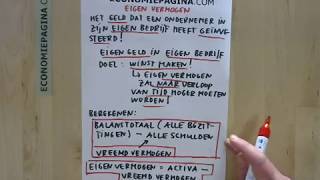 ECONOMIEPAGINA.COM
EIGEN VERMOGEN
HET GELD DAT EEN ONDERNEMER IN
ZIJN EIGEN BEDRIJF HEEFT GEÏNVE-
STEERD!
EIGEN GELD IN EIGEN BEDRIJF
DOEL: WINST MAKEN!
↳ EIGEN VERMOGEN
ZAL NAAR VERLOOP
VAN TIJD HOGER MOETEN
WORDEN!
BEREKENEN:
BALANSTOTAAL (ALLE BEZIT-
TINGEN) – ALLE SCHULDEN
VREEMD VERMOGEN
EIGEN VERMOGEN = ACTIVA –
VREEMD VERMOGEN
ECONOMIEPAGINA.COM